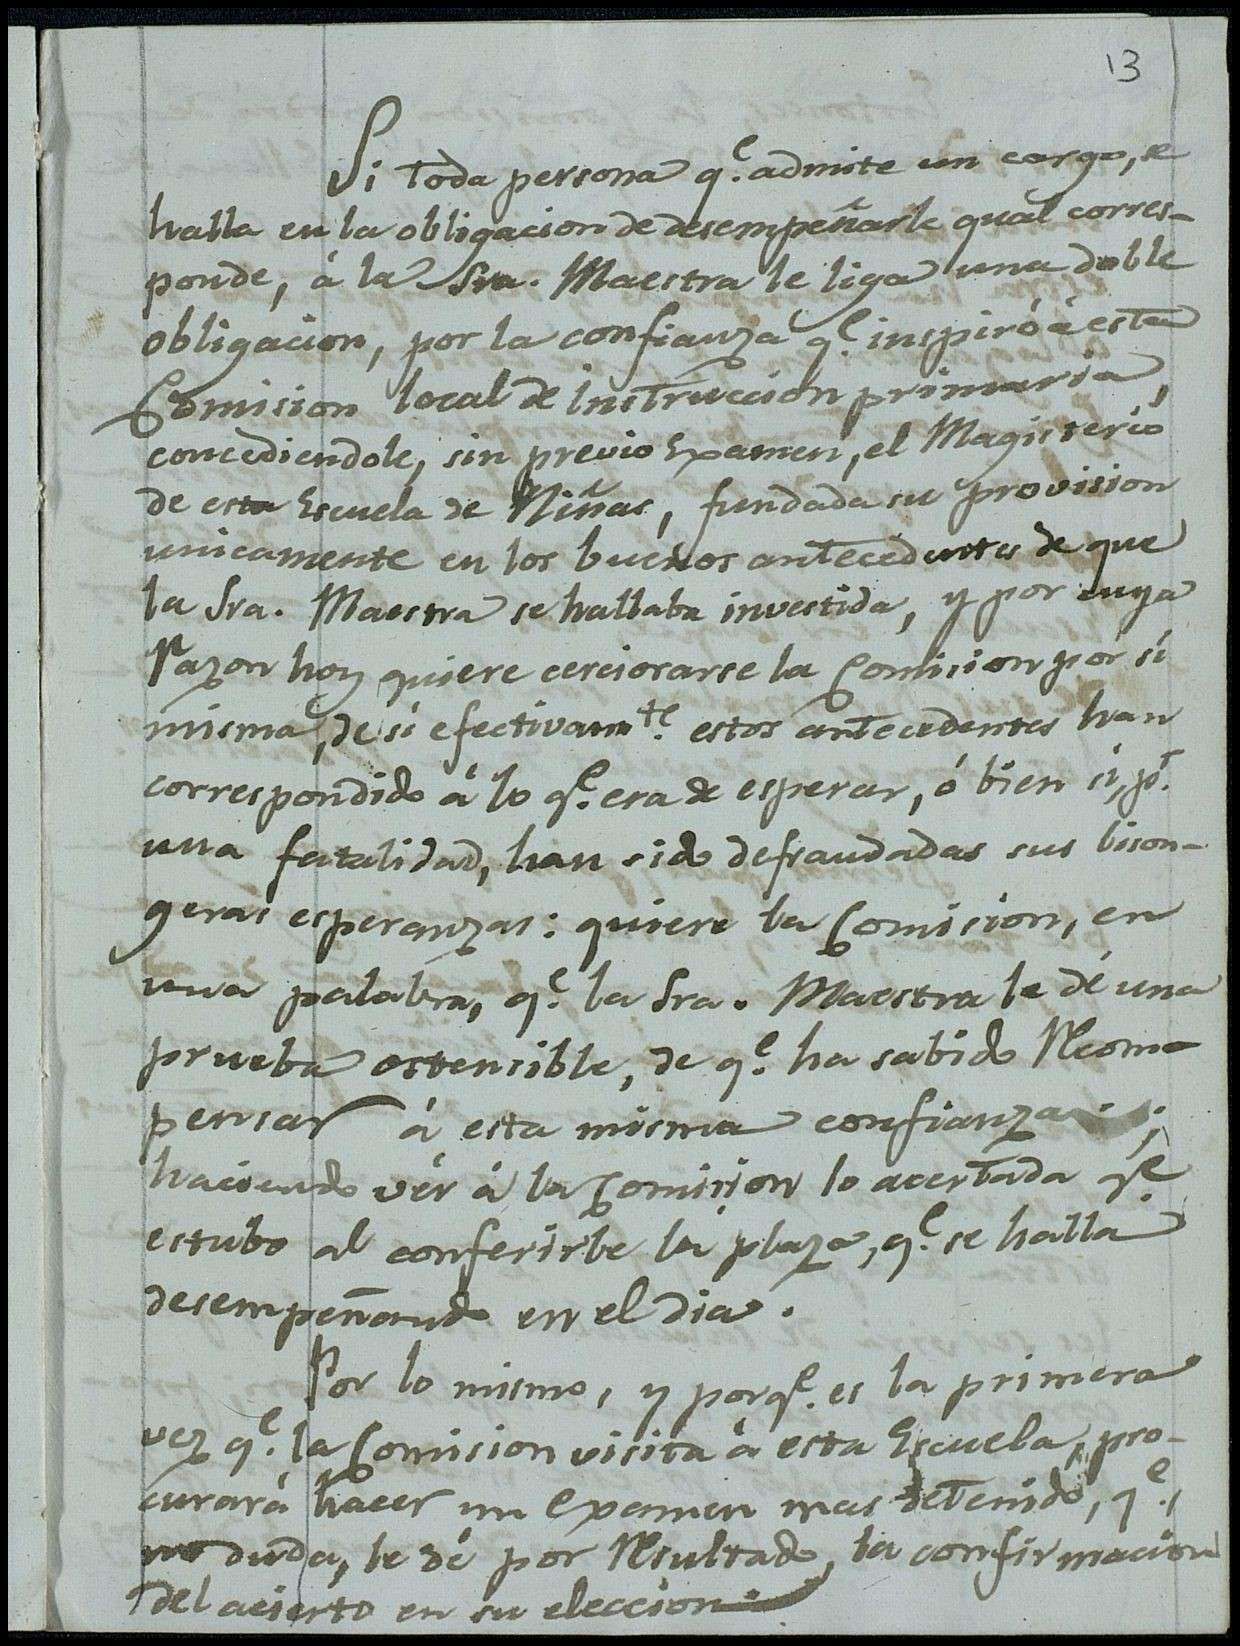 13
Si toda persona q.e admite un cargo, se
halla en la obligacion de desempeñarle qual corres-
ponde, á la Sra. Maestra le liga una doble
obligacion, por la confianza q.e inspiró á esta
Comision local de instruccion primaria,
concediendole, sin previo Examen, el Magisterio
de esta Escuela de Niñas, fundada su provision
unicamente en los buenos antecedentes de que
la Sra. Maestra se hallaba investida, y por cuya
razon hoy quiere cerciorarse la Comision por sí
misma, de si efectivam.te estos antecedentes han
correspondido á lo q.e era de esperar, ó bien si, p.r
una fatalidad, han sido defraudadas sus lison-
geras esperanzas: quiere la Comision, en
una palabra, q.e la Sra. Maestra le dé una
prueba ostensible, de q.e ha sabido Recom
pensar á esta misma confianza;
haciendo vér á la Comision lo acertada q.e
estubo al conferirle la plaza, q.e se halla
desempeñando en el dia.
Por lo mismo, y porq.e es la primera
vez q.e la Comision visita á esta Escuela, pro-
curará hacer un Examen mas detenido, q.e,
no duda, le dé por Resultado, la confirmacion
del acierto en su eleccion.